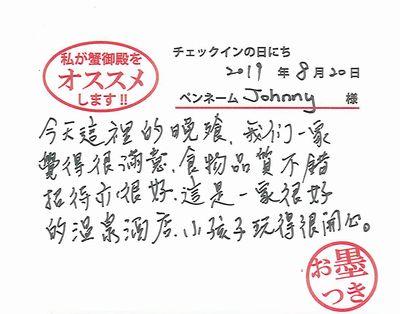 私が蟹御殿を
オススメ
します!!
チェックインの日にち
2019 年 8 月 20 日
ペンネーム Johnny 様
今天這裡的晚飱,我们一家
覺得很滿意,食物品質不錯
招待亦很好,這是一家很好
的溫泉酒店,小孩子玩得很開心。
お墨
つき